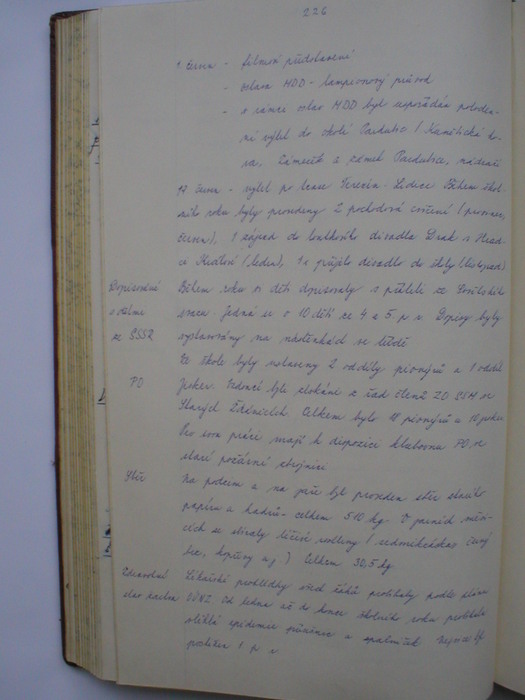 226
1. červen - filmové představení
- oslava MDD - lampionový průvod
- v rámci oslav MDD byl uspořádán poloden-
ní výlet do okolí Pardubic / Kunětická ho-
ra, Zámeček a zámek Pardubice, nádraží
17. červen - výlet po trase Terezín - Lidice Během škol-
ního roku byly provedeny 2 pochodová cvičení / prosinec,
červen), 1 zájezd do loutkového divadla Drak v Hrad-
ci Králové / leden), 1x přijelo divadlo do školy (listopad)
Dopisování Během roku si děti dopisovaly s přáteli ze Sovětského
s dětmi svazu. Jedná se o 10 dětí ze 4 a 5 p. r. Dopisy byly
ze SSSR vystavovány na nástěnkách ve třídě
Ve škole byly ustaveny 2 oddíly pionýrů a 1 oddíl
PO jisker. Vedoucí byli získáni z řad členů ZO SSM ve
Starých Ždánicích. Celkem bylo pionýrů a jisker
Pro svou práci mají k dispozici klubovnu PO ve
staré požární zbrojnici
Sběr Na podzim a na jaře byl proveden sběr starého
papíru a hadrů - celkem 510 kg. V jarních měsí-
cích se sbíraly léčivé rostliny / sedmikráska,
bez, kopřivy aj. ) Celkem 30,5 kg
Zdravotní Lékařské prohlídky všech žáků probíhaly podle plánu
stav OÚNZ. Od ledna až do konce školního roku probíhala
veliká epidemie a spalniček Nejvíce byl
postižen 1. p. r.